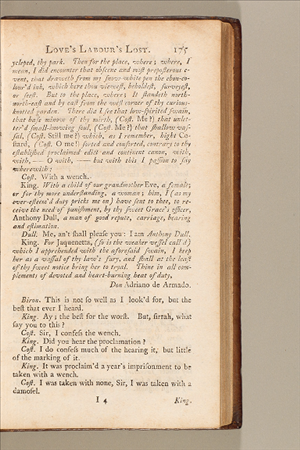 LOVE'S LABOUR'S LOST. 175
ycleped, thy park. Then for the place, where; where, I
mean, I did encounter that obscene and most preposterous e-
vent, that draweth from my snow-white pen the ebon-co-
lour'd ink, which here thou viewest, beholdest, surveyest,
or seest. But to the place, where; It standeth north-
north-east and by east from the west corner of thy curious-
knotted garden. There did I see that low-spirited swain,
that base minow of thy mirth, (Cost. Me?) that unlet-
ter'd small-knowing soul, (Cost. Me?) that shallow vas-
sal, (Cost. Still me?) which, as I remember, hight Co-
stard, (Cost. O me!) sorted and consorted, contrary to thy
established proclaimed edict and continent canon, with,
with, —— O with, —— but with this I passion to say
wherewith:
Cost. With a wench.
King. With a child of our grandmother Eve, a female;
or for thy more understanding, a woman; him, I (as my
ever-esteem'd duty pricks me on) have sent to thee, to re-
ceive the meed of punishment, by thy sweet Grace's officer,
Anthony Dull, a man of good repute, carriage, bearing
and estimation.
Dull. Me, an't shall please you: I am Anthony Dull.
King. For Jaquenetta, (so is the weaker vessel call'd)
which I apprehended with the aforesaid swain, I keep
her as a vassal of thy law's fury, and shall at the least
of thy sweet notice bring her to tryal. Thine in all com-
plements of devoted and heart-burning heat of duty,
Don Adriano de Armado.
Biron. This is not so well as I look'd for, but the
best that ever I heard.
King. Ay; the best for the worst. But, sirrah, what
say you to this?
Cost. Sir, I confess the wench.
King. Did you hear the proclamation?
Cost. I do confess much of the hearing it, but little
of the marking of it.
King. It was proclaim'd a year's imprisonment to be
taken with a wench.
Cost. I was taken with none, Sir, I was taken with a
damosel.
I 4 King.